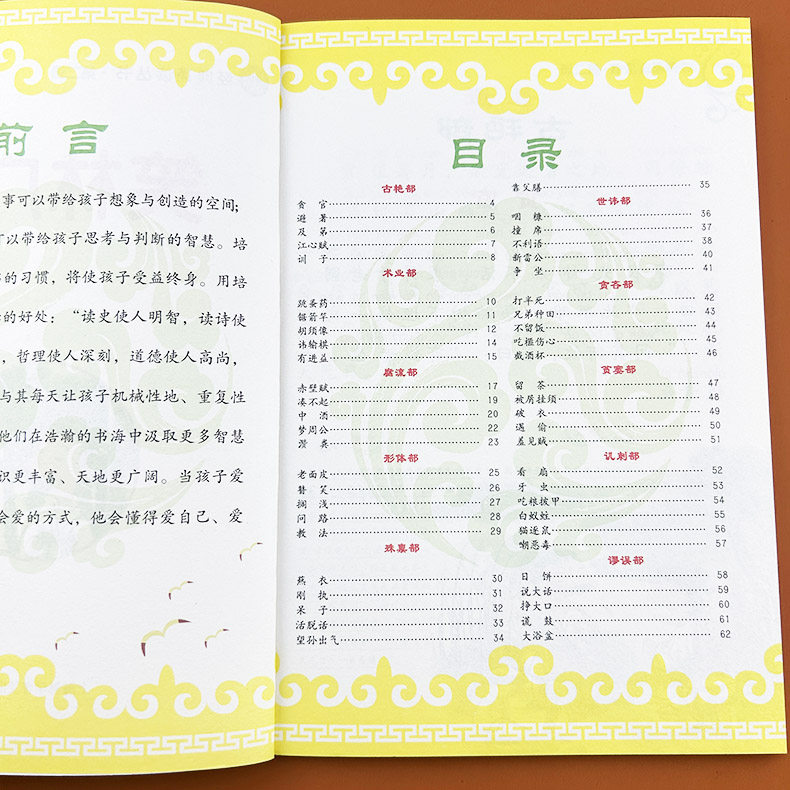 前言
事可以带给孩子想象与创造的空间;
可以带给孩子思考与判断的智慧。培
的习惯，将使孩子受益终身。用培
的好处：“读史使人明智，读诗使
，哲理使人深刻，道德使人高尚，
与其每天让孩子机械性地、重复性
他们在浩瀚的书海中汲取更多智慧
识更丰富、天地更广阔。当孩子爱
会爱的方式，他会懂得爱自己、爱
目录
古艳部
贪官 4
避暑 5
及第 6
江心赋 7
训子 8
术业部
跳蚤药 10
锯箭竿 11
胡须像 12
讳输棋 14
有进益 15
腐流部
赤壁赋 17
凑不起 19
中酒 20
梦周公 22
粪 23
形体部
老面皮 25
瞽笑 26
搁浅 27
问路 28
教法 29
殊禀部
衣 30
刚执 31
呆子 32
活脱话 33
望孙出气 34
靠父膳 35
世讳部
咽糠 36
撞席 37
不利语 38
新雷公 40
争坐 41
贪吝部
打半死 42
兄弟种田 43
不留饭 44
吃榧伤心 45
截酒杯 46
贫窭部
留茶 47
被屑挂须 48
破衣 49
遇偷 50
羞见贼 51
讥刺部
看扇 52
牙虫 53
吃粮披甲 54
白蚁蛀 55
猫逐鼠 56
嘲恶毒 57
谬误部
日饼 58
说大话 59
挣大口 60
谎鼓 61
大浴盆 62